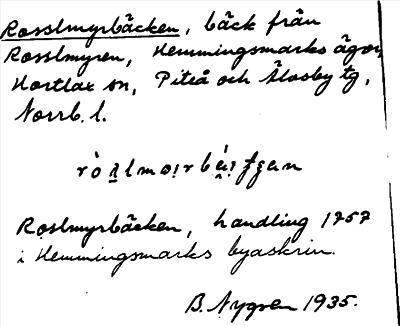 Rosslmyrbäcken, bäck från
Rosslmyren, Hemmingsmarks ägor,
Hortlax sn, Piteå och Älvsby tg,
Norrb. l.
Roslmyrbäcken, handling 1757
i Hemmingsmarks byaskrin.
B. Nygren 1935.